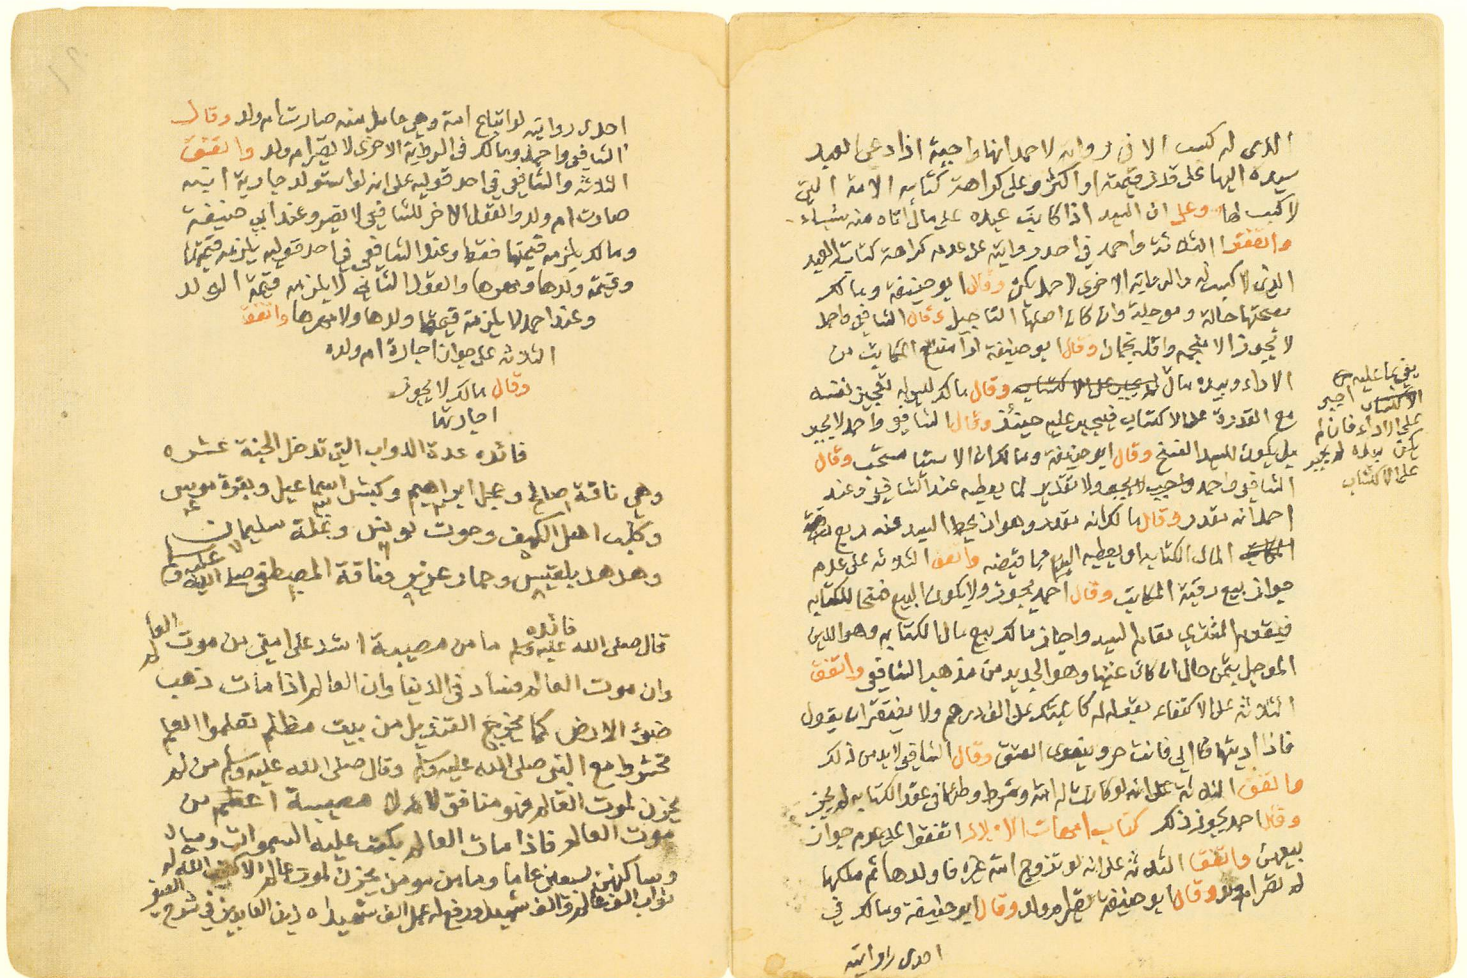 الذى له كسب الا فى رواية لاحمد انها واجبة اذا دعى العبد
سيده اليها على قدر قيمته او اكثر وعلى كراهة كتابه الامة التى
لا كسب لها وعلى ان السيد اذا كاتب عبده على مال اتاه منه شياء
واتفقوا الثلاثة واحمد في احدى روايتيه على عدم كراهة كتابة العبد
الذى لا كسب له والرواية الاخرى لاحمد يكره وقال ابو حنيفة ومالك
تصحتها حالة وموجلة وان كان اصلها التاجيل وقال الشافعى واحمد
لا تجوز الا منجمه واقله نجمان وقال ابو حنيفة لو امتنع المكاتب من
الاداء وبيده مال وقال مالك ليس له تعجيز نفسه
مع القدرة على الاكتساب فيجبر عليه حينئذ وقال الشافعى واحمد لا يجبر
بل يكون للسيد الفسخ وقال ابو حنيفة ومالك ان الايتا مستحب وقال
الشافعى واحمد واجب ولا تقدير لما يعطيه عند الشافعى وعند
احمد انه يقدر وقال مالك انه يقدر وهو ان يحط السيد عنه ربع
المال الكتابه او يعطيه مما قبضه واتفق الثلاثه على عدم
جواز بيع رقبة المكاتب وقال احمد يجوز ولا يكون البيع فسخا للكتابه
فيقوم المشترى مقام السيد واجاز مالك بيع مال الكتابه وهو الدين
الموجل بثمن حال ان كان عنها وهو الجديد من مذهب الشافعى واتفق
الثلاثة على الاكتفاء بقوله له كاتبتك على الف درهم ولا يفتقر ان يقول
فاذا اديتها الي فانت حر وينوى العتق وقال الشافعى لا بد من ذلك
واتفق الثلاثة على انه لو كاتب له امة وشرط وطئها فى عقد الكتابه لم يجز
وقال احمد يجوز ذلك كتاب امهات الاولاد اتفقوا على عدم جواز
بيعهن واتفق الثلاثة على انه لو تزوج امة غيره فاولدها ثم ملكها
لم تصر ام ولد وقال ابو حنيفة تصير ام ولد وقال ابو حنيفة ومالك في
احدى روايتيه
يفى بما عليه
الاكتساب اجبر
على الاداء فان لم
يكن بيده لم يجبر
على الاكتساب
احدى روايتيه لو ابتاع امة وهي حامل منه صارت ام ولد وقال
الشافعى واحمد ومالك فى الرواية الاخرى لا تصير ام ولد واتفق
الثلاثة والشافعى في احد قوليه على انه لو استولد جارية ابنه
صارت ام ولد والقول الاخر للشافعى لا تصير وعند ابي حنيفة
ومالك يلزمه قيمتها فقط وعند الشافعى في احد قوليه يلزمه قيمتها
وقيمة ولدها ومهرها والقول الثاني لا يلزمه قيمة الولد
وعند احمد لا يلزمه قيمتها ولدها ولا مهرها واتفق
الثلاثه على جواز اجارة ام ولده
وقال مالك لا يجوز
اجارتها
فائده عدة الدواب التي تدخل الجنة عشره
وهي ناقة صالح وعجل ابراهيم وكبش اسماعيل وبقرة موسى
وكلب اهل الكهف وحوت يونس ونملة سليمان
وهدهد بلقيس وحمار عزير وناقة المصطفى صلى الله عليه وسلم
فائده
قال صلى الله عليه وسلم ما من مصيبة اشد على امتى من موت العالم
وان موت العالم فساد في الدنيا وان العالم اذا مات ذهب
ضوء الارض كما يخرج القنديل من بيت مظلم تعلموا العلم
تحشروا مع النبى صلى الله عليه وسلم وقال صلى الله عليه وسلم من لم
يحزن لموت العالم فهو منافق لانه لا مصيبة اعظم من
موت العالم فاذا مات العالم بكت عليه السموات
وساكنهن سبعين عاما وما من مومن يحزن لموت عالم الا كتب الله له
ثواب الف عالم والف شهيد ورفع له عمل الف شهيد اه زين العابدين في شرح